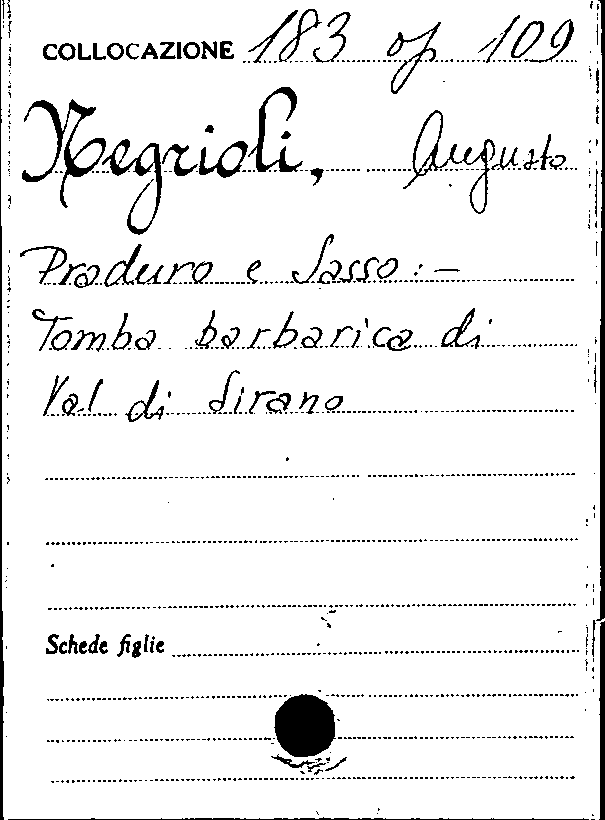 COLLOCAZIONE 183 op 109
Negrioli, Augusto
Praduro e Sasso: —
Tomba barbarica di
Val di Sirano
Schede figlie